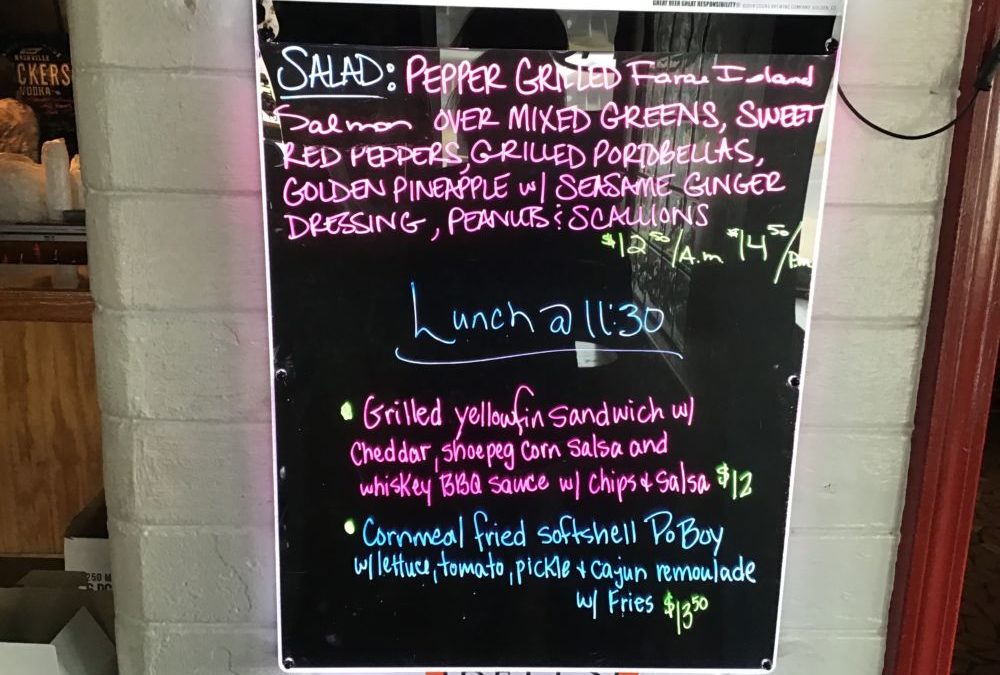 GREAT BEER GREAT RESPONSIBILITY®
SALAD: PEPPER GRILLED Faroe Island
Salmon OVER MIXED GREENS, SWEET
RED PEPPERS, GRILLED PORTOBELLAS,
GOLDEN PINEAPPLE w/ SEASAME GINGER
DRESSING, PEANUTS & SCALLIONS
$12 50/A.m $14 50/Pm
Lunch @ 11:30
• Grilled yellowfin sandwich w/
Cheddar, shoepeg corn salsa and
whiskey BBQ sauce w/ chips & salsa $12
• Cornmeal fried softshell Po Boy
w/ lettuce, tomato, pickle & cajun remoulade
w/ Fries $13 50
NASHVILLE
CKERS
VODKA